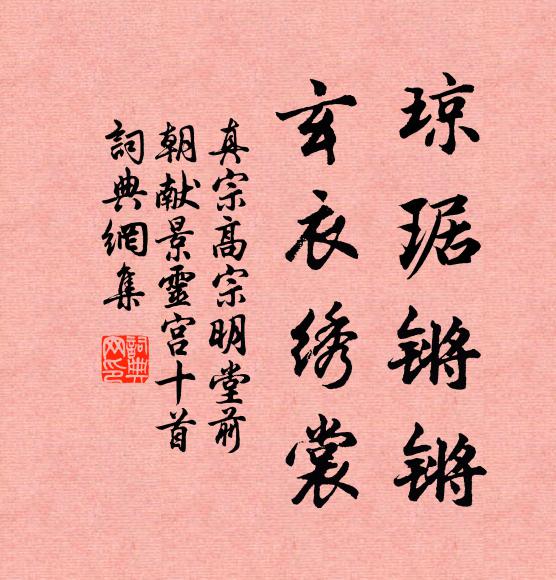 琼琚锵锵
玄衣绣裳
真宗高宗明堂前
朝献景靈宫十首
詞典網集
詞典
网印